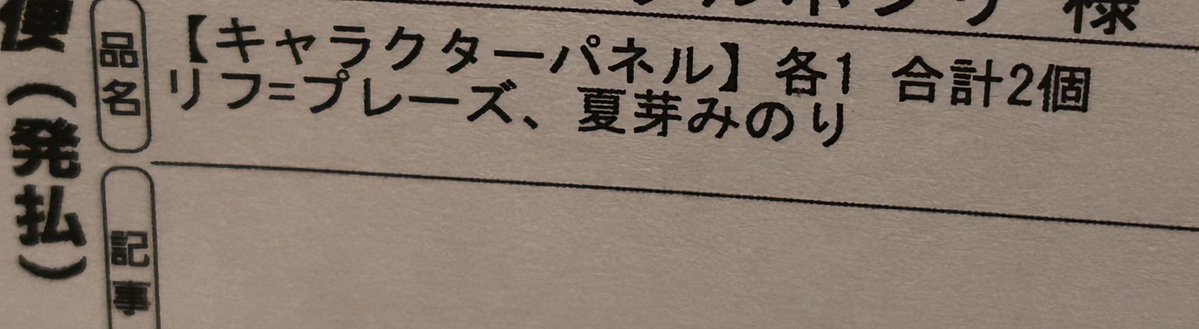 様
便(発払)
品名
【キャラクターパネル】各1 合計2個
リフ=プレーズ、夏芽みのり
記事